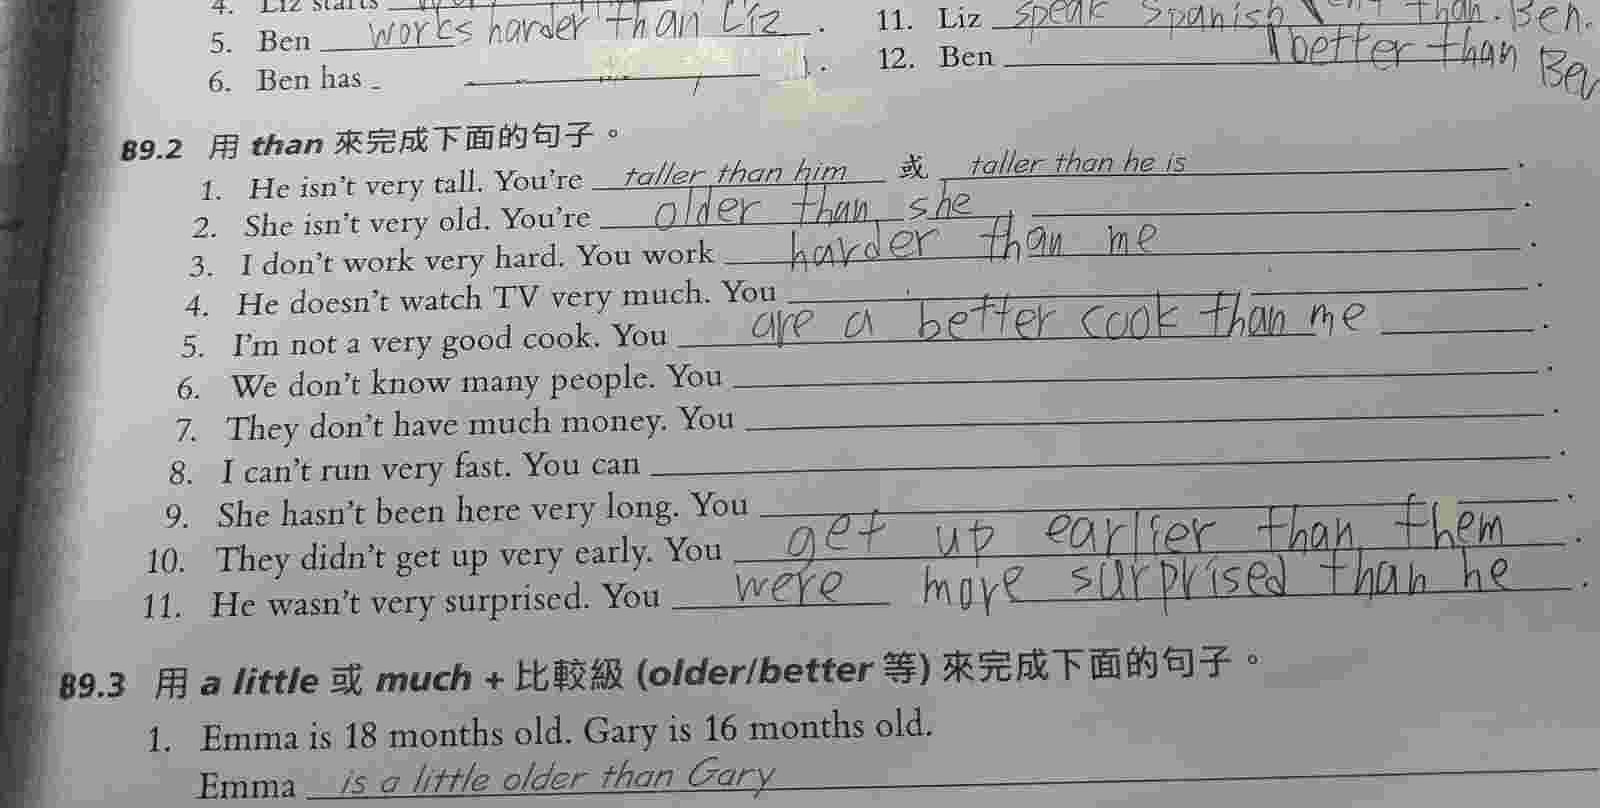 4. Liz starts
5. Ben works harder than Liz.
6. Ben has
11. Liz speak Spanish than. Ben.
12. Ben better than Ben
89.2 用 than 來完成下面的句子。
1. He isn't very tall. You're taller than him 或 taller than he is.
2. She isn't very old. You're older than she.
3. I don't work very hard. You work harder than me.
4. He doesn't watch TV very much. You.
5. I'm not a very good cook. You are a better cook than me.
6. We don't know many people. You.
7. They don't have much money. You.
8. I can't run very fast. You can.
9. She hasn't been here very long. You.
10. They didn't get up very early. You get up earlier than them.
11. He wasn't very surprised. You were more surprised than he.
89.3 用 a little 或 much + 比較級 (older/better 等) 來完成下面的句子。
1. Emma is 18 months old. Gary is 16 months old.
Emma is a little older than Gary